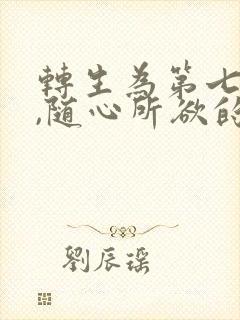 轉生為第七
,随心所欲的
劉辰瑶